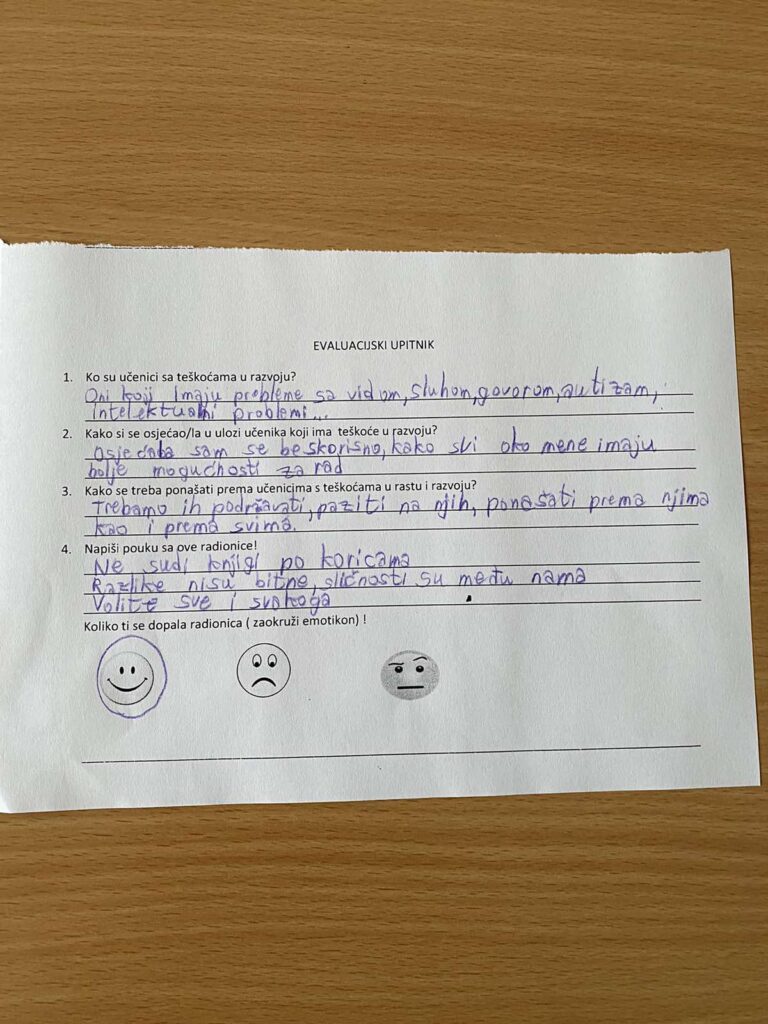 EVALUACIJSKI UPITNIK
1. Ko su učenici sa teškoćama u razvoju?
Oni koji imaju probleme sa vidom, sluhom, govorom, autizam,
intelektualni problemi...
2. Kako si se osjećao/la u ulozi učenika koji ima teškoće u razvoju?
Osjećala sam se beskorisno, kako svi oko mene imaju
bolje mogućnosti za rad
3. Kako se treba ponašati prema učenicima s teškoćama u rastu i razvoju?
Trebamo ih podržavati, paziti na njih, ponašati prema njima
kao i prema svima.
4. Napiši pouku sa ove radionice!
Ne sudi knjigi po koricama
Razlike nisu bitne, sličnosti su među nama
Volite sve i svakoga
Koliko ti se dopala radionica ( zaokruži emotikon) !